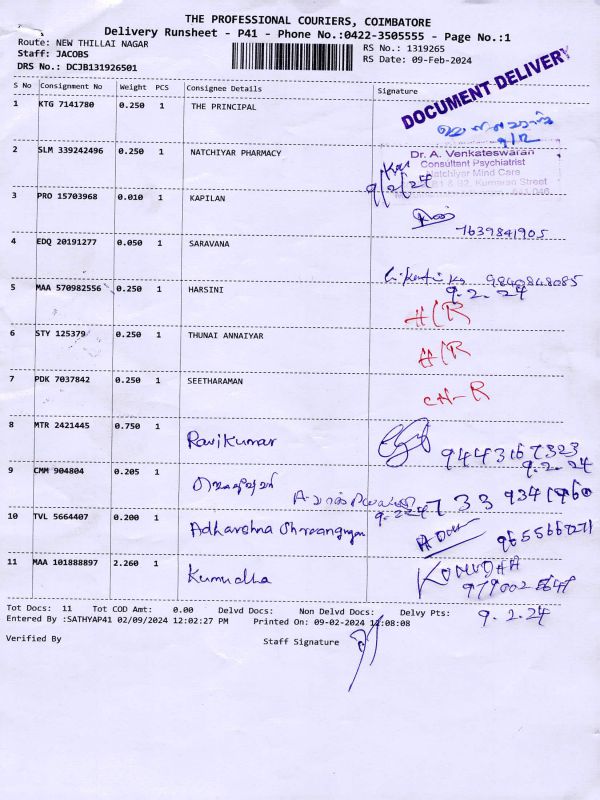 THE PROFESSIONAL COURIERS, COIMBATORE
Delivery Runsheet - P41 - Phone No.:0422-3505555 - Page No.:1
Route: NEW THILLAI NAGAR
Staff: JACOBS
DRS No.: DCJB131926501
RS No.: 1319265
RS Date: 09-Feb-2024
DOCUMENT DELIVERY
S No Consignment No Weight PCS Consignee Details Signature
1 KTG 7141780 0.250 1 THE PRINCIPAL
9/2
2 SLM 339242496 0.250 1 NATCHIYAR PHARMACY
Dr. A. Venkateswaran
Consultant Psychiatrist
Natchiyar Mind Care
Kumaran Street
9/2/24
3 PRO 15703968 0.010 1 KAPILAN
7639841905
4 EDQ 20191277 0.050 1 SARAVANA
9840848085
9.2.24
5 MAA 570982556 0.250 1 HARSINI
H/R
6 STY 125379 0.250 1 THUNAI ANNAIYAR
H/R
7 PDK 7037842 0.250 1 SEETHARAMAN
CN-R
8 MTR 2421445 0.750 1 Ravikumar
9443167323
9.2.24
9 CMM 904804 0.205 1
733 9341960
10 TVL 5664407 0.200 1 Adharshna
11 MAA 101888897 2.260 1 Kumudha KUMUDHA
9.2.24
Tot Docs: 11 Tot COD Amt: 0.00 Delvd Docs: Non Delvd Docs: Delvy Pts:
Entered By :SATHYAP41 02/09/2024 12:02:27 PM Printed On: 09-02-2024 12:08:08
Verified By Staff Signature